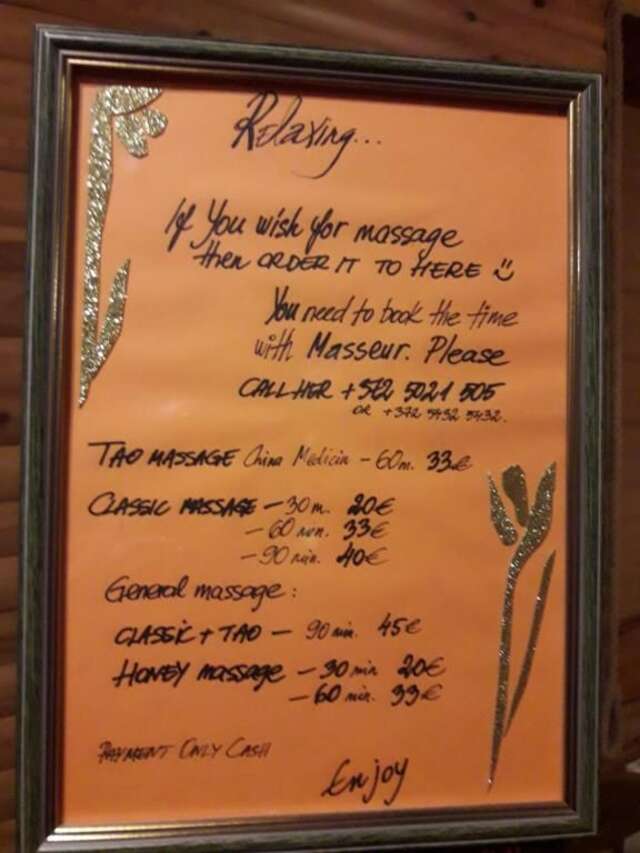 Relaxing...
If You wish for massage
then ORDER IT TO HERE
You need to book the time
with Masseur. Please
CALL HER +372 5021 505
OR +372 5452 5432.
TAO MASSAGE China Medicin - 60m. 33€
CLASSIC MASSAGE - 30 m. 20€
- 60 min. 33€
- 90 min. 40€
General massage:
CLASSIC + TAO - 90 min. 45€
HONEY massage - 30 min 20€
- 60 min. 33€
PAYMENT ONLY CASH
Enjoy